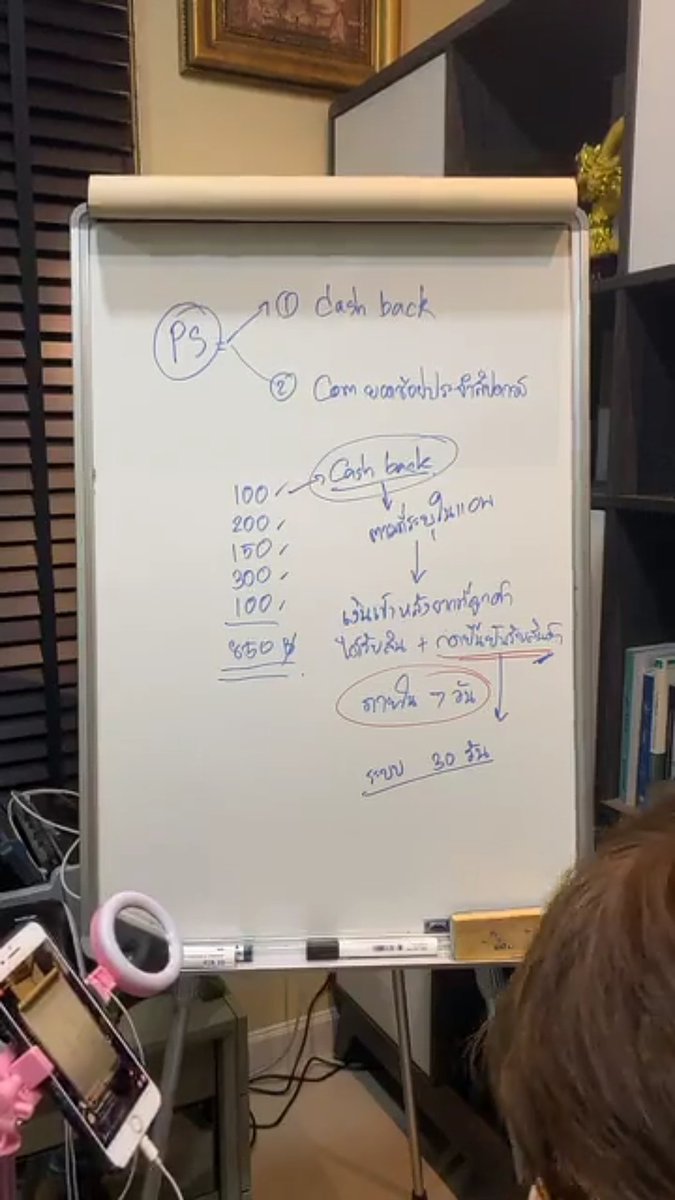 PS
① Cash back
② Com ยอดช้อปประจำสัปดาห์
100
200
150
300
100
850 ฿
Cash back
ตามที่ระบุในแอพ
เงินเข้าหลังจากที่ลูกค้า
ได้รับสิน + กดยืนยันรับสินค้า
ภายใน 7 วัน
ระบบ 30 วัน